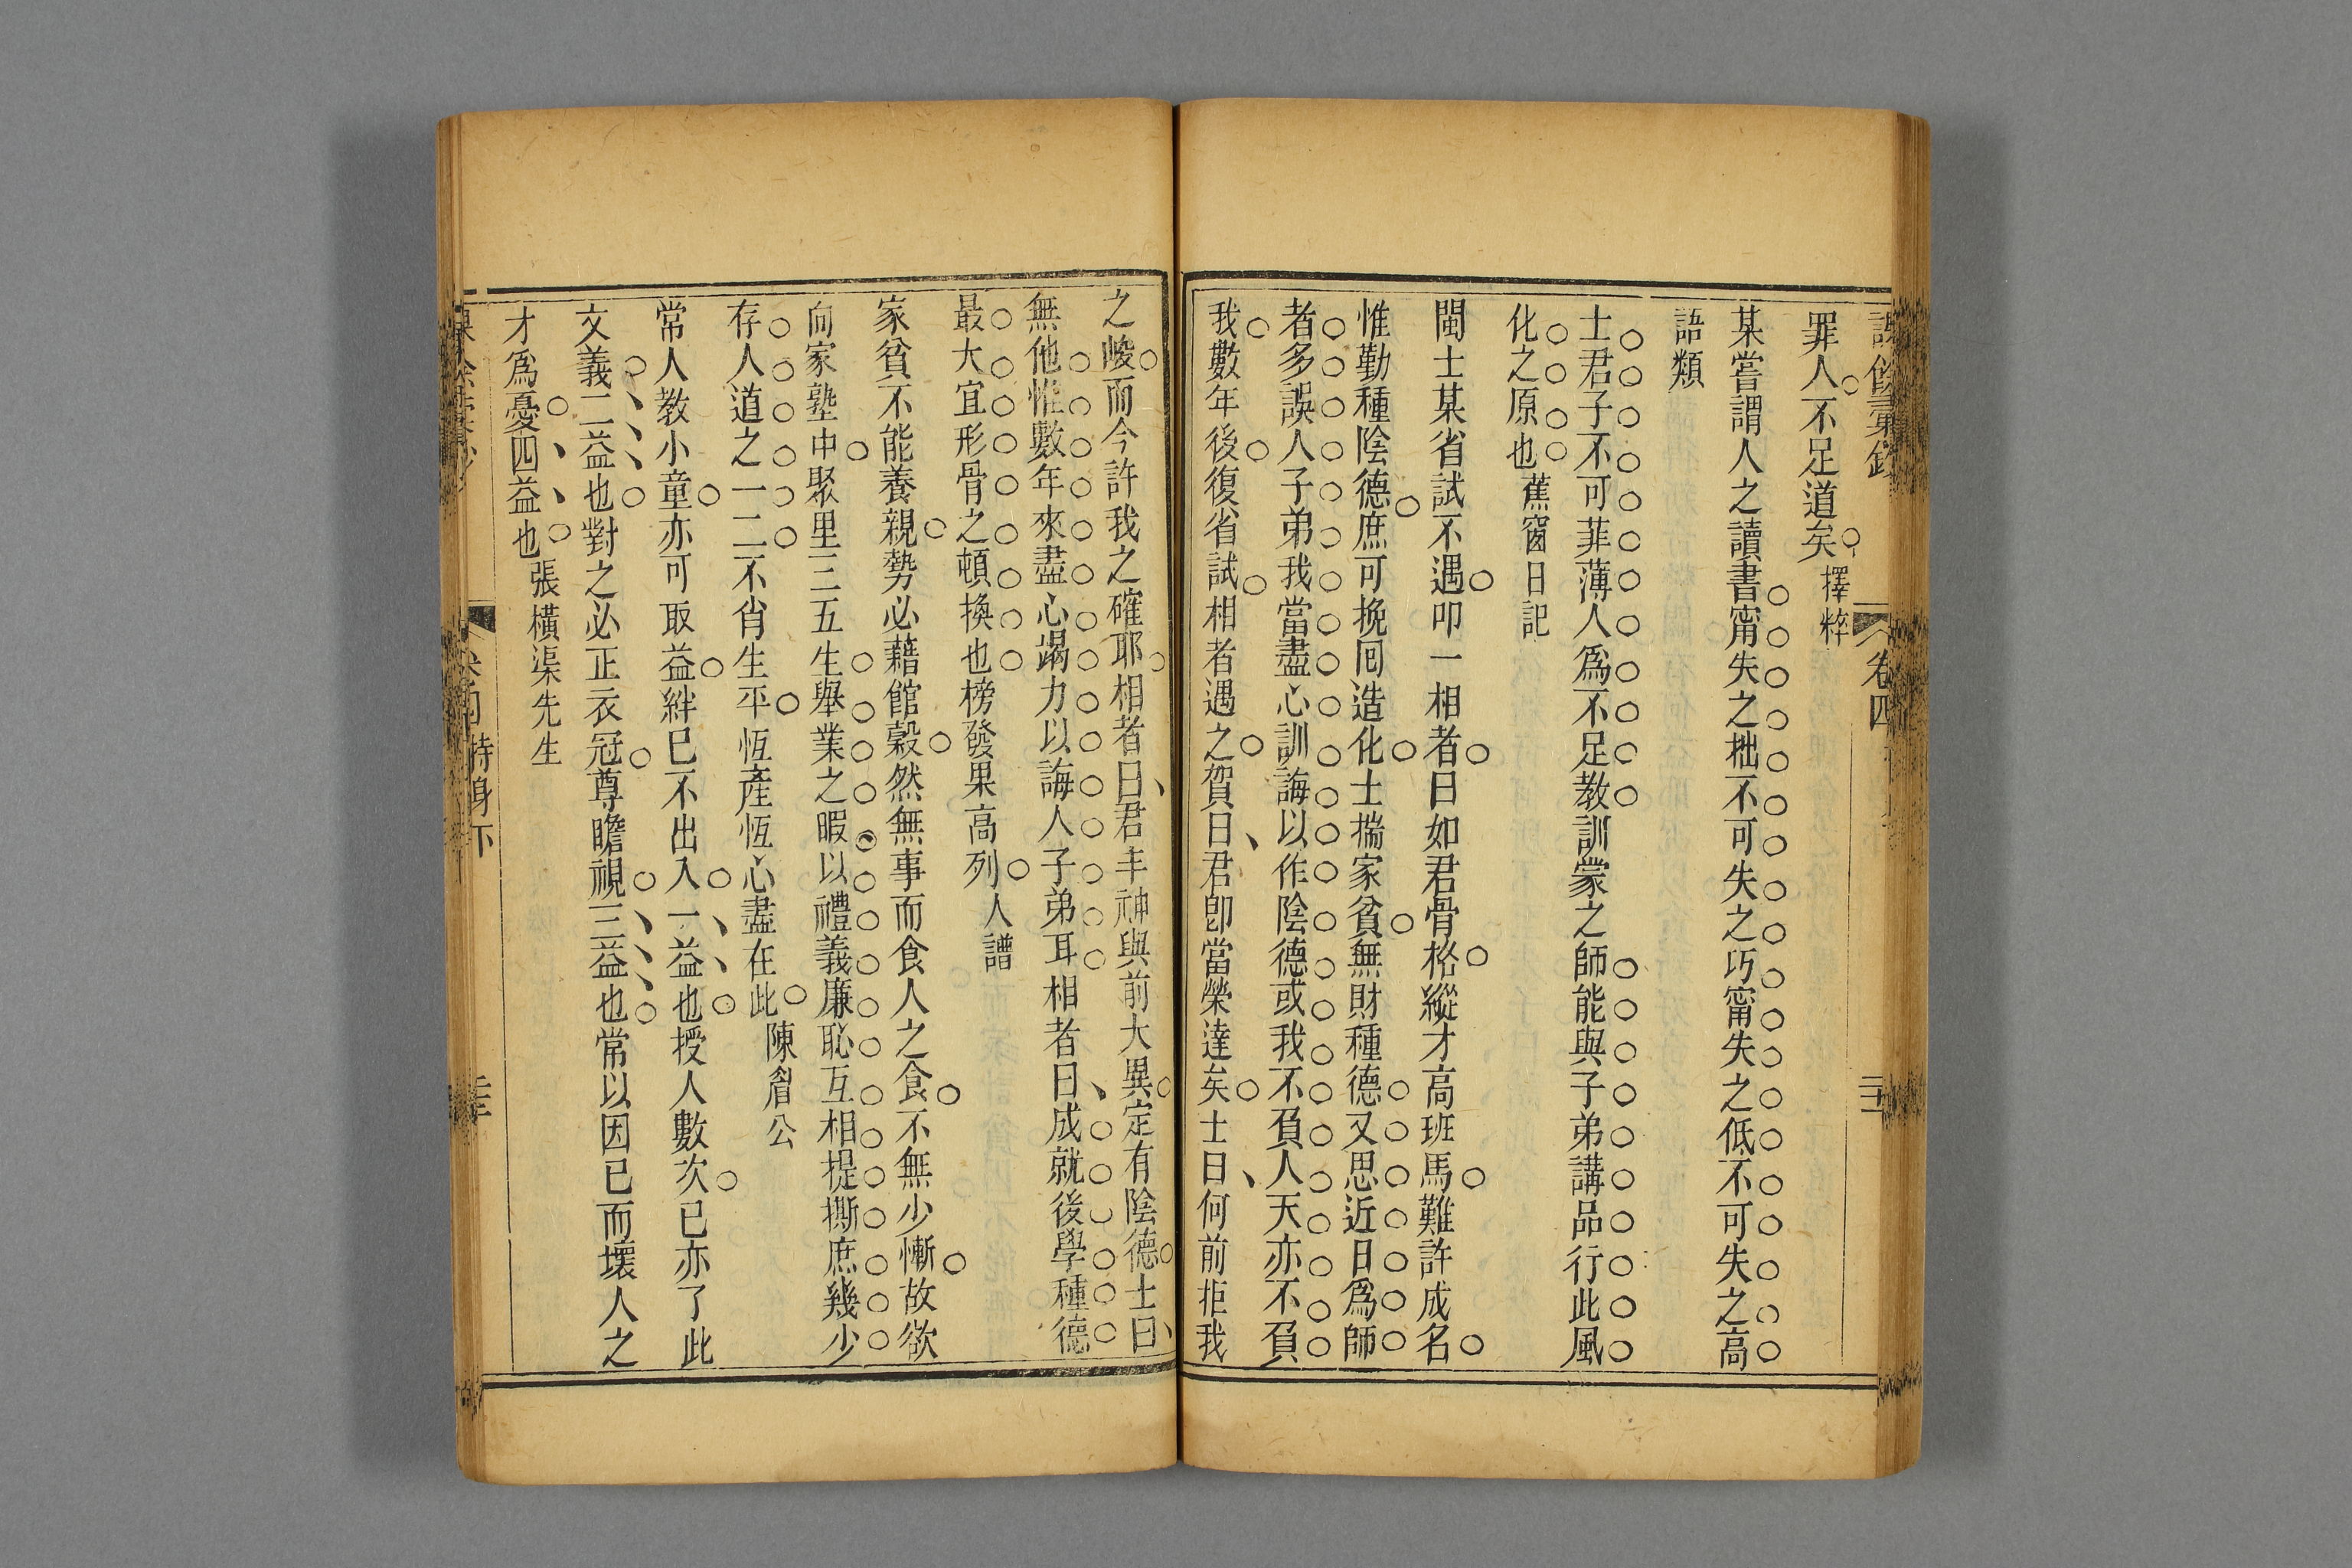 卷四
罪人不足道矣擇粹
某嘗謂人之讀書甯失之拙不可失之巧甯失之低不可失之高
語類
士君子不可菲薄人為不足教訓蒙之師能與子弟講品行此風
化之原也蕉窗日記
閩士某省試不遇叩一相者曰如君骨格縱才高班馬難許成名
惟勤種陰德庶可挽囘造化士揣家貧無財種德又思近日為師
者多誤人子弟我當盡心訓誨以作陰德或我不負人天亦不負
我數年後復省試相者遇之賀曰君卽當榮達矣士曰何前拒我
之峻而今許我之確耶相者曰君丰神與前大異定有陰德士曰
無他惟數年來盡心竭力以誨人子弟耳相者曰成就後學種德
最大宜形骨之頓換也榜發果高列人譜
家貧不能養親勢必藉館穀然無事而食人之食不無少慚故欲
向家塾中聚里三五生舉業之暇以禮義廉恥互相提撕庶幾少
存人道之一二不肖生平恆產恆心盡在此陳眉公
常人教小童亦可取益絆已不出入一益也授人數次已亦了此
文義二益也對之必正衣冠尊瞻視三益也常以因已而壞人之
才爲憂四益也張橫渠先生
持身下